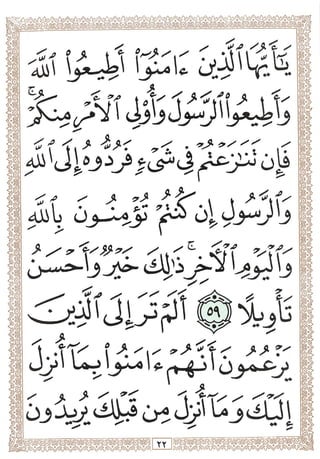 يَٰٓأَيُّهَا ٱلَّذِينَ ءَامَنُوٓا۟ أَطِيعُوا۟ ٱللَّهَ
وَأَطِيعُوا۟ ٱلرَّسُولَ وَأُو۟لِى ٱلْأَمْرِ مِنكُمْ ۖ
فَإِن تَنَٰزَعْتُمْ فِى شَىْءٍ فَرُدُّوهُ إِلَى ٱللَّهِ
وَٱلرَّسُولِ إِن كُنتُمْ تُؤْمِنُونَ بِٱللَّهِ
وَٱلْيَوْمِ ٱلْءَاخِرِ ۚ ذَٰلِكَ خَيْرٌ وَأَحْسَنُ
تَأْوِيلًا ٥٩ أَلَمْ تَرَ إِلَى ٱلَّذِينَ
يَزْعُمُونَ أَنَّهُمْ ءَامَنُوا۟ بِمَآ أُنزِلَ
إِلَيْكَ وَمَآ أُنزِلَ مِن قَبْلِكَ يُرِيدُونَ
٢٢